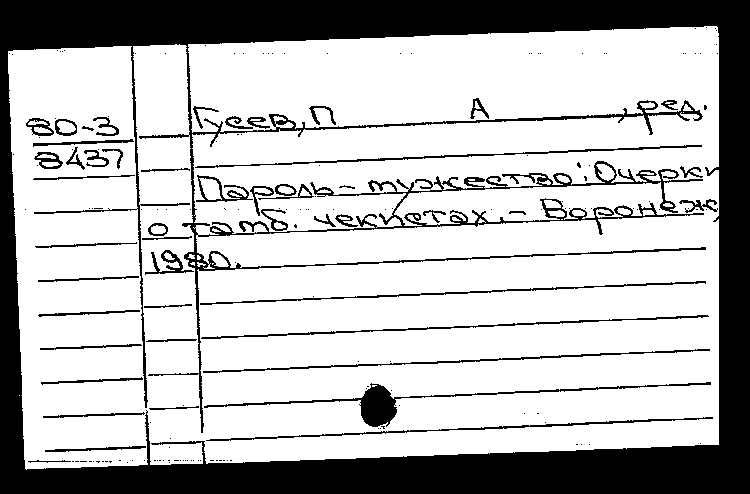 80-3
8437
Гусев, П А , ред.
Пароль - мужество: Очерки
о тамб. чекистах. - Воронеж,
1980.